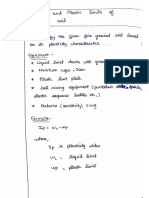 and Plastic limits of
soil
fy the given fine grained soil based
on its plasticity characteristics
Equipment:-
Liquid limit device with
Moisture cups, Oven
Plastic limit plate
Soil mixing equipment (porcelain
plastic
Balance (sensitivity) 0.01g
Formula:-
Ip = wL - wp
where,
Ip is plasticity index
wL = liquid limit
wp = plastic limit